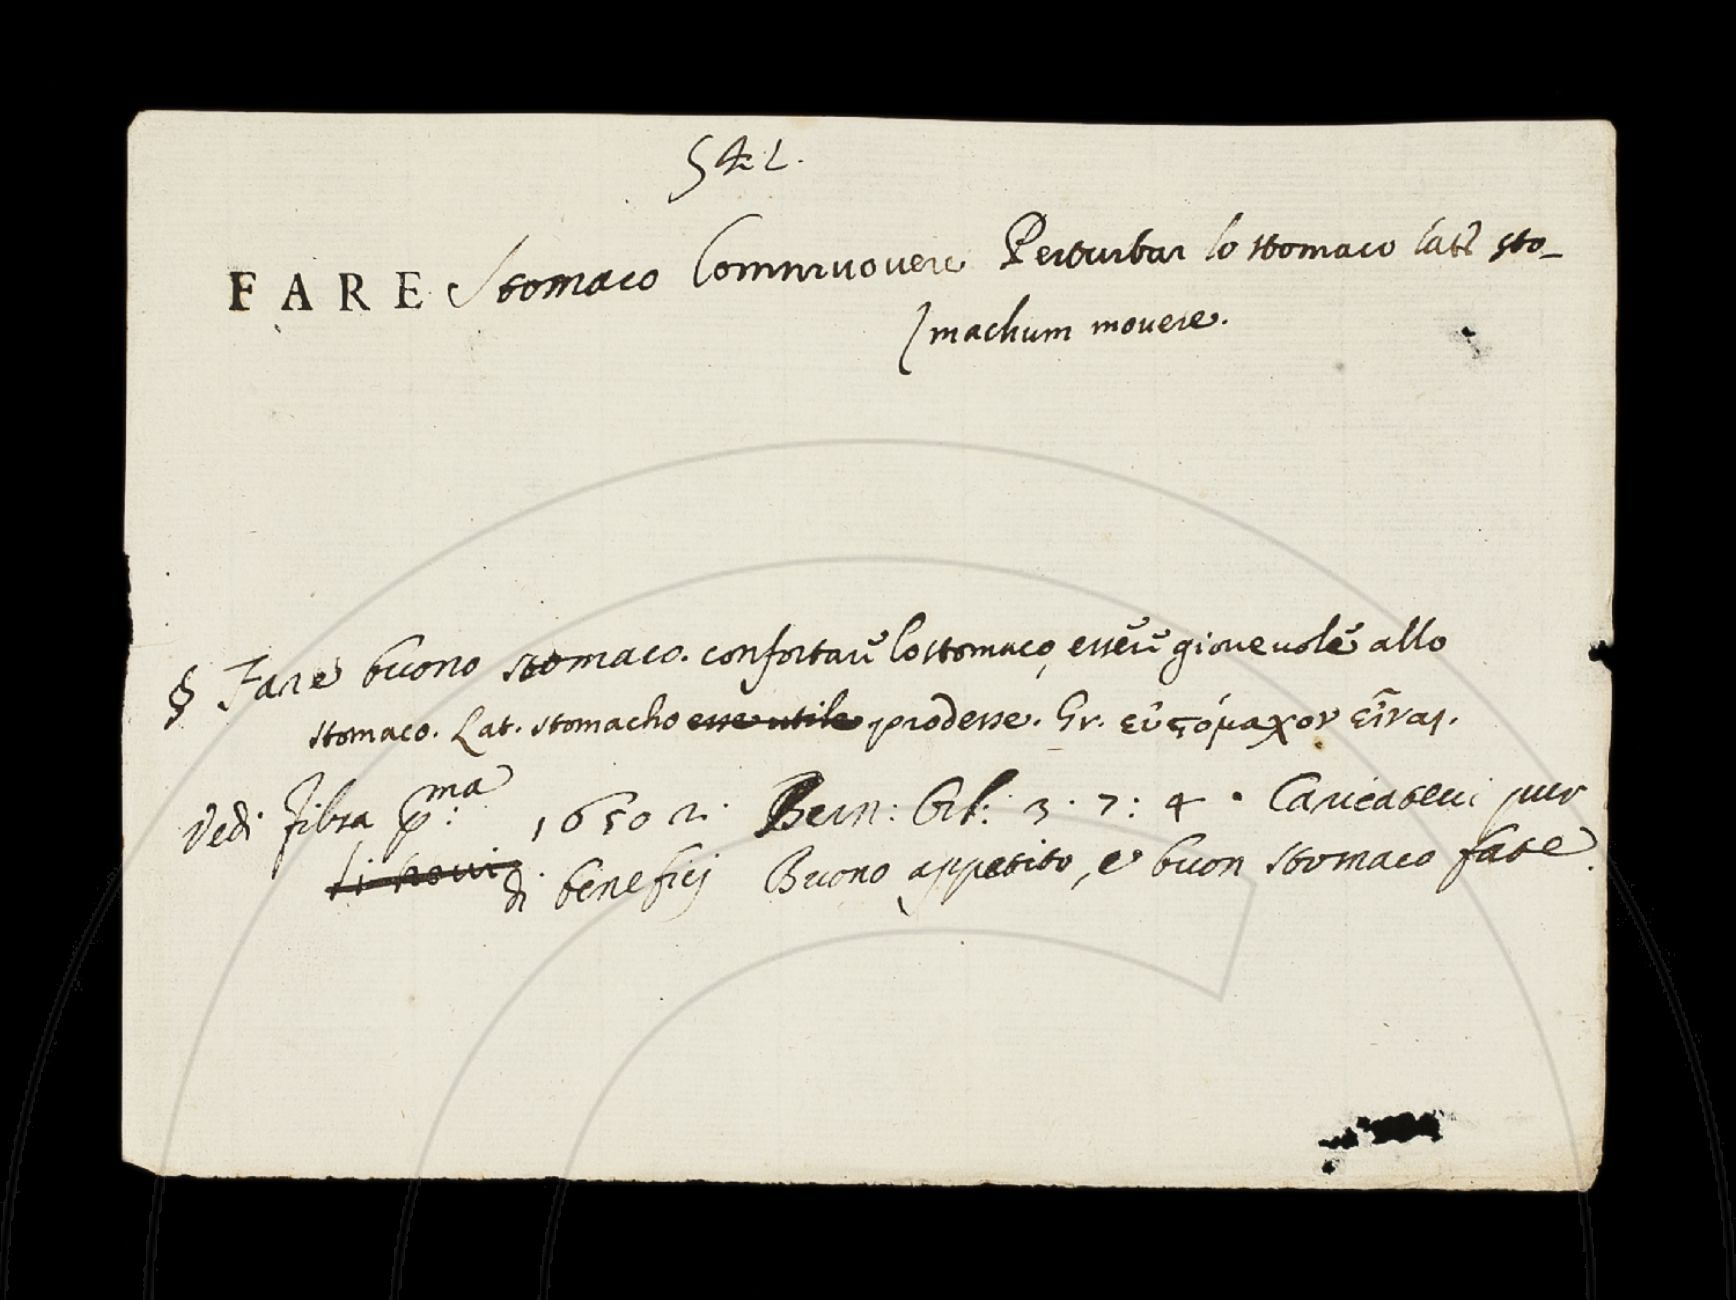 542.
FARE Stomaco Commuovere Perturbar lo stomaco latẽ sto-
machum mouere.
§ Fare buono stomaco. confortare lo stomaco, essere gioueuole allo
stomaco. Lat. stomacho esse utile prodesse. Gr. εὐςόμαχον εἶναι.
Vedi fibra p:ma 1650 2. Bern: Orl: 3. 7: 4. Caricateui pur
di benefiej Buono appetito, e buon stomaco fate.